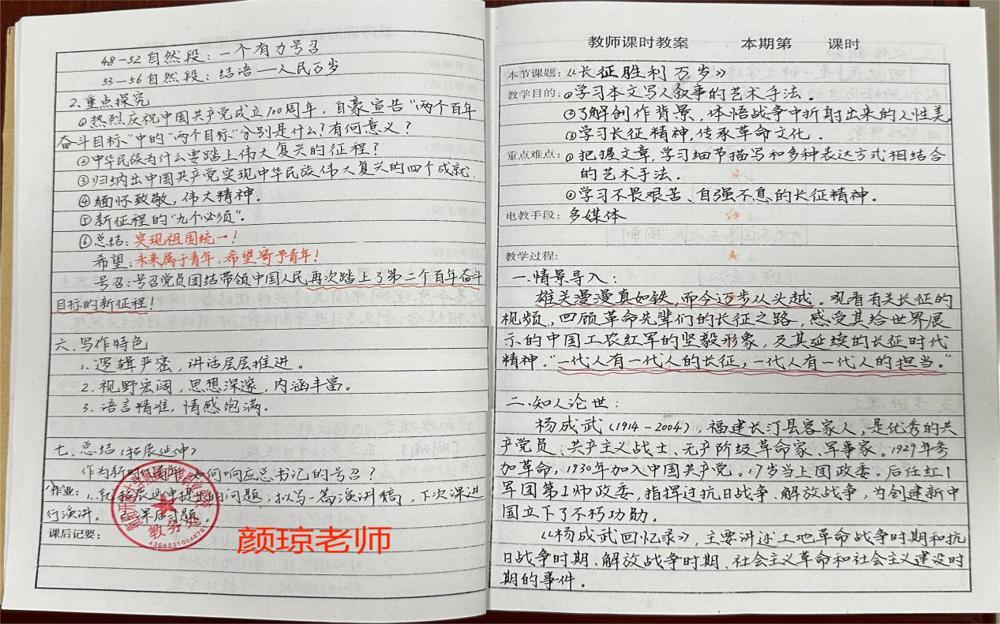 48-52自然段：一个有力号召
53-56自然段：结语—人民万岁
2.重点探究
①热烈庆祝中国共产党成立100周年，自豪宣告“两个百年
奋斗目标”中的“两个目标”分别是什么？有何意义？
②中华民族为什么要踏上伟大复兴的征程？
③归纳出中国共产党实现中华民族伟大复兴的四个成就.
④缅怀致敬，伟大精神.
⑤新征程的“九个必须”.
⑥总结：实现祖国统一！
希望：未来属于青年，希望寄予青年！
号召：号召党员团结带领中国人民再次踏上了第二个百年奋斗
目标的新征程！
六、写作特色
1.逻辑严密，讲话层层推进.
2.视野宏阔，思想深邃，内涵丰富.
3.语言精准，情感饱满.
七、总结（拓展延伸）
作为新时代青年，如何响应总书记的号召？
作业：1.提出的问题，拟写一篇演讲稿，下次课进
行演讲.2.课后习题.
教务处
课后记要：
颜琼老师
教师课时教案 本期第 课时
本节课题：《长征胜利万岁》
教学目的：①学习本文写人叙事的艺术手法.
②了解创作背景、体悟战争中折射出来的人性美
③学习长征精神，传承革命文化.
重点难点：①把握文章，学习细节描写和多种表达方式相结合
的艺术手法.
②学习不畏艰苦、自强不息的长征精神.
电教手段：多媒体
教学过程：
一.情景导入：
雄关漫漫真如铁，而今迈步从头越。观看有关长征的
视频，回顾革命先辈们的长征之路，感受其给世界展
示的中国工农红军的坚毅形象，及其延续的长征时代
精神.“一代人有一代人的长征，一代人有一代人的担当.”
二.知人论世：
杨成武(1914-2004)，福建长汀县客家人，是优秀的共
产党员、共产主义战士、无产阶级革命家、军事家.1929年参
加革命，1930年加入中国共产党。17岁当上团政委，后任红1
军团第1师政委，指挥过抗日战争、解放战争，为创建新中
国立下了不朽功勋.
《杨成武回忆录》，主要讲述土地革命战争时期和抗
日战争时期、解放战争时期、社会主义革命和社会主义建设时
期的事件.